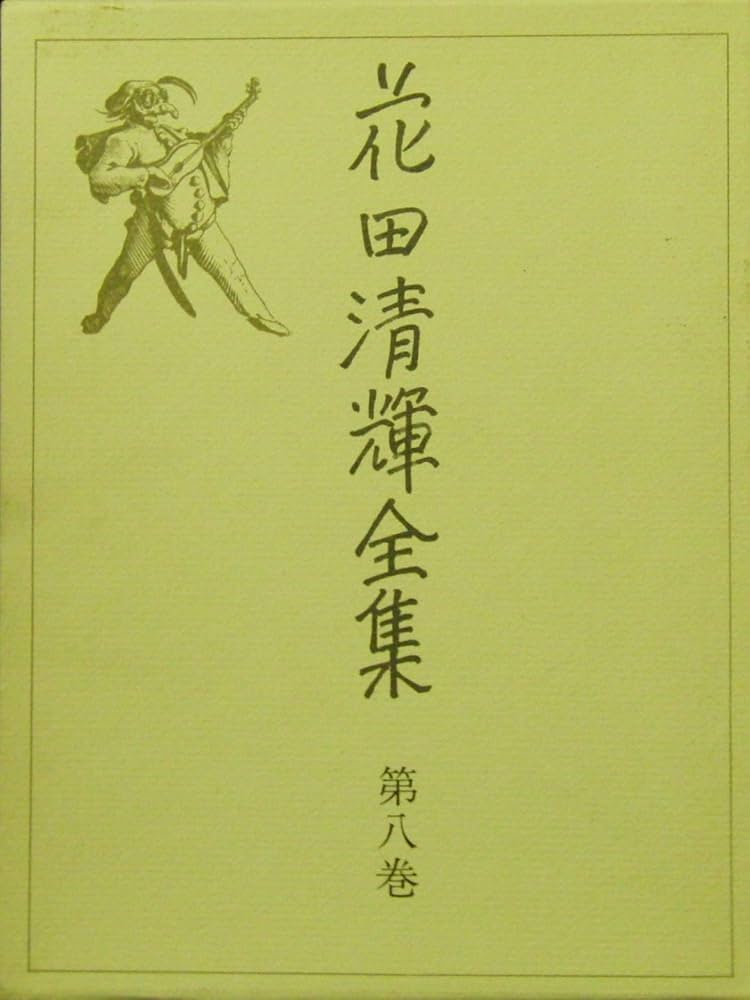 花田清輝全集
第八巻